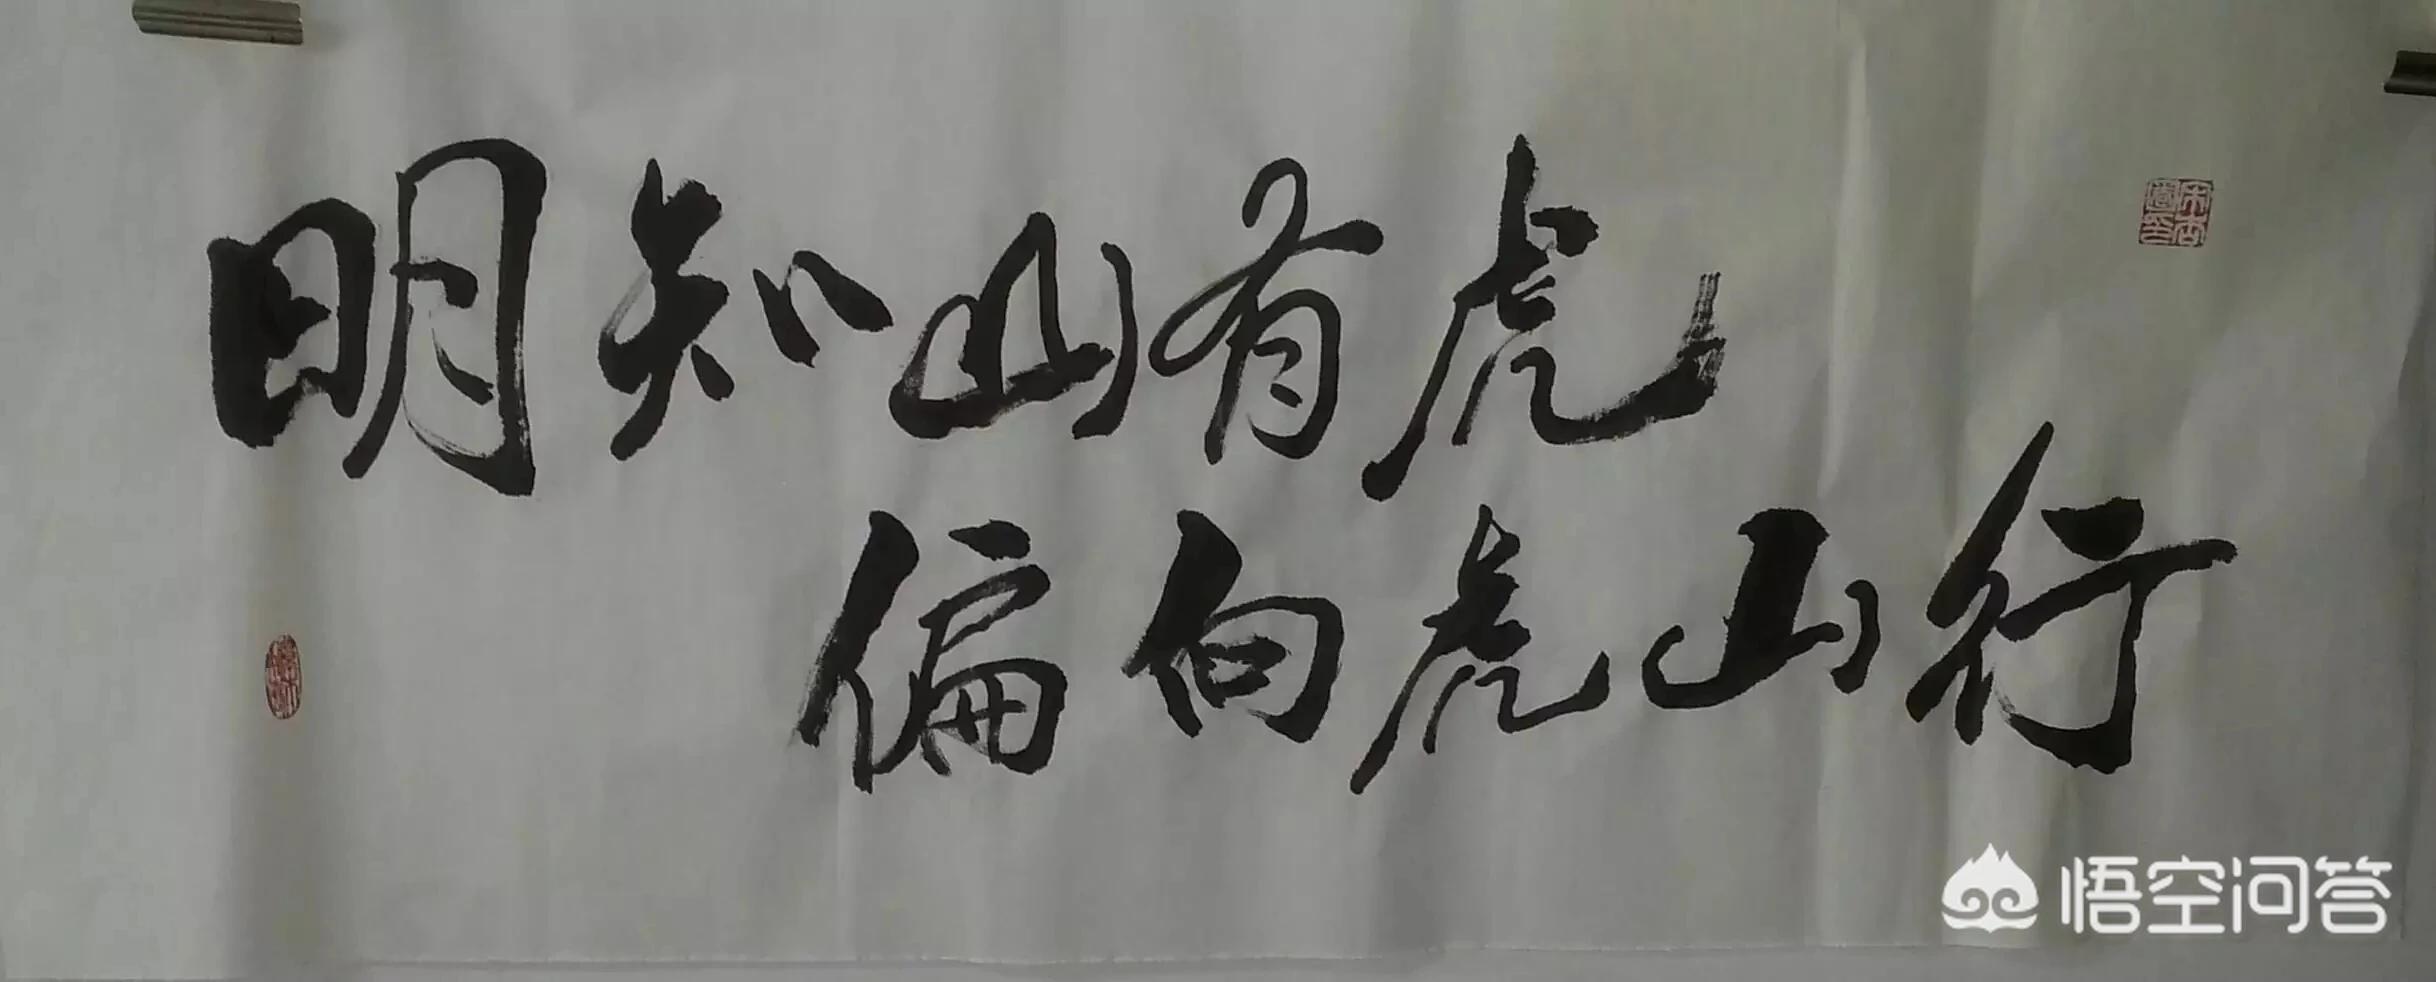 明知山有虎
偏向虎山行
悟空问答